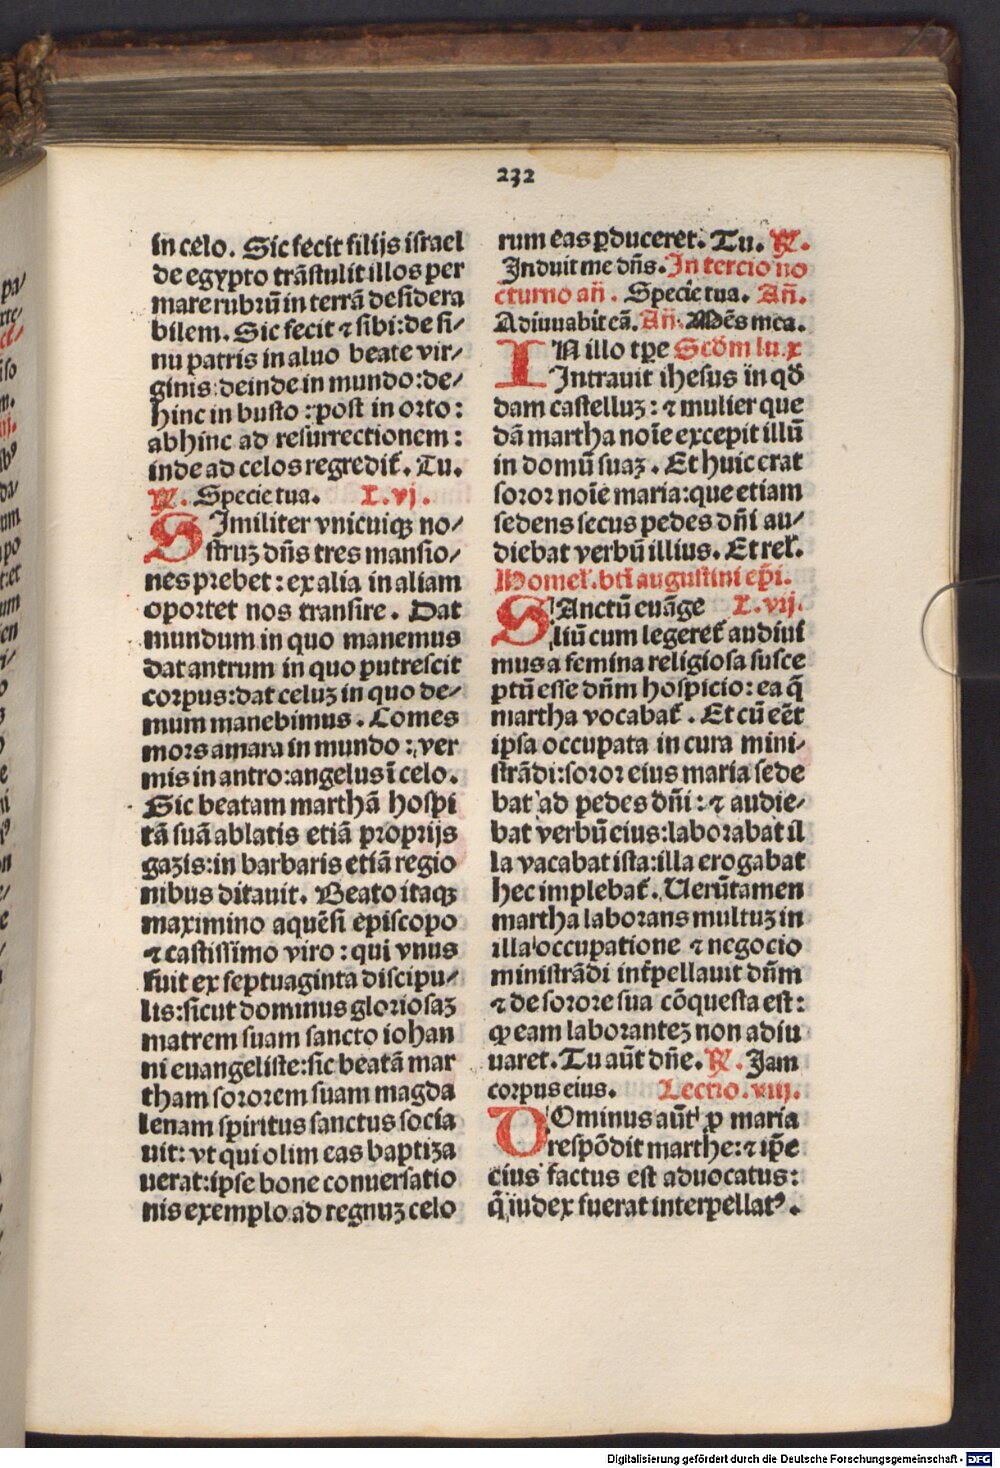 232
in celo. Sic fecit filijs israel
de egypto trãstulit illos per
mare rubrũ in terrã desidera
bilem. Sic fecit ⁊ sibi: de si⸗
nu patris in aluo beate vir⸗
ginis: deinde in mundo: de⸗
hinc in busto: post in orto:
abhinc ad resurrectionem:
inde ad celos regredit᷑. Tu.
℞. Specie tua. L. vj.
SImiliter vnicuiqꝫ no⸗
struꝫ dñs tres mansio⸗
nes prebet: ex alia in aliam
oportet nos transire. Dat
mundum in quo manemus
dat antrum in quo putrescit
corpus: dat celuꝫ in quo de⸗
mum manebimus. Comes
mors amara in mundo: ver
mis in antro: angelus ĩ celo.
Sic beatam marthã hospi
tã suã ablatis etiã proprijs
gazis: in barbaris etiã regio
nibus ditauit. Beato itaqꝫ
maximino aquẽsi episcopo
⁊ castissimo viro: qui vnus
fuit ex septuaginta discipu⸗
lis: sicut dominus gloriosaꝫ
matrem suam sancto iohan
ni euangeliste: sic beatã mar
tham sororem suam magda
lenam spiritus sanctus socia
uit: vt qui olim eas baptiza
uerat: ipse bone conuersatio
nis exemplo ad regnuꝫ celo
rum eas ꝑduceret. Tu. ℞.
Induit me dñs. In tercio no
cturno añ. Specie tua. Añ.
Adiuuabit eã. Añ. Mẽs mea.
IN illo tꝑe Scd̃m lu. x
Intrauit ihesus in qd̃
dam castelluꝫ: ⁊ mulier que
dã martha noĩe excepit illũ
in domũ suaꝫ. Et huic erat
soror noĩe maria: que etiam
sedens secus pedes dñi au⸗
diebat verbũ illius. Et rel̕.
Homel̕. bti̕ augustini ep̃i.
SAnctũ euãge L. vij.
liũ cum legeret᷑ audiui
mus a femina religiosa susce
ptũ esse dñm hospicio: ea q̃
martha vocabat᷑. Et cũ eẽt
ipsa occupata in cura mini⸗
strãdi: soror eius maria sede
bat ad pedes dñi: ⁊ audie⸗
bat verbũ eius: laborabat il
la vacabat ista: illa erogabat
hec implebat᷑. Uerũtamen
martha laborans multuꝫ in
illa occupatione ⁊ negocio
ministrãdi int̕pellauit dñm
⁊ de sorore sua cõquesta est:
ꝙ eam laboranteꝫ non adiu
uaret. Tu aũt dñe. ℞. Jam
corpus eius. Lectio. viij.
DOminus aũt ꝓ maria
respõdit marthe: ⁊ ip̃e
eius factus est aduocatus:
q̃ iudex fuerat interpellatꝰ.
Digitalisierung gefördert durch die Deutsche Forschungsgemeinschaft - DFG